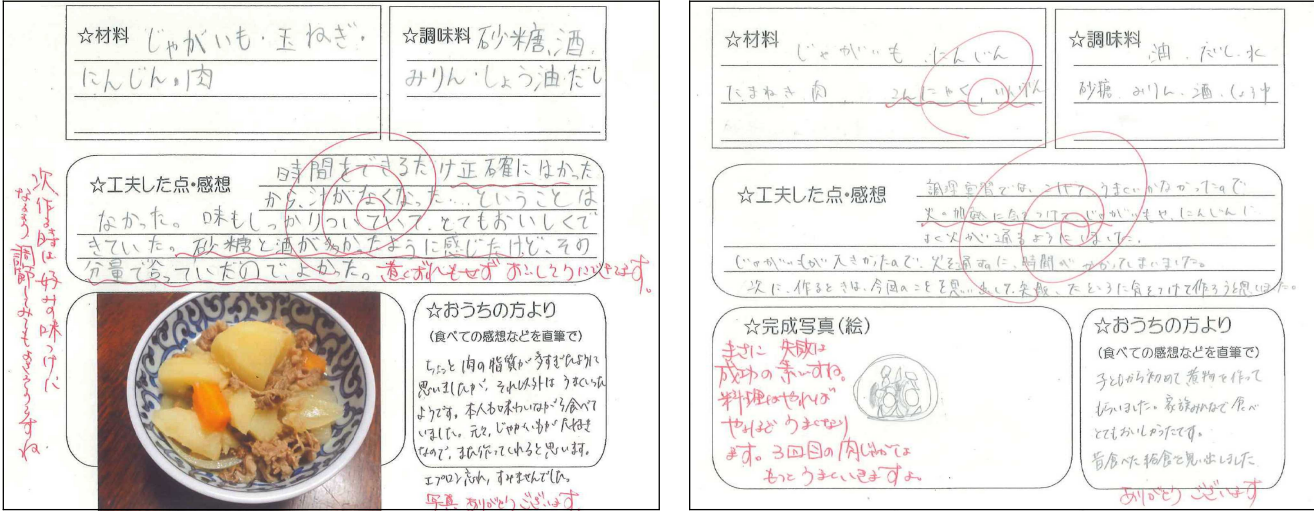 ☆材料 じゃがいも・玉ねぎ・
にんじん・肉
☆調味料 砂糖、酒、
みりん・しょう油・だし
☆工夫した点・感想
時間をできるだけ正確にはかった
から、汁がなくなった…ということは
なかった。味もしっかりついていて、とてもおいしくで
きていた。砂糖と酒が多かったように感じたけど、その
分量で合っていたのでよかった。
煮くずれもせず おいしそうにできてます。
次作る時は好みの味つけに
なるよう調節してみてもよさそうですね。
☆おうちの方より
(食べての感想などを直筆で)
ちょっと肉の脂質が多すぎたようにて
思いましたが、それ以外はうまくいった
ようです。本人も味わいながら食べて
いました。元々、じゃがいもが大好き
なので、また作ってくれると思います。
エプロン忘れ、すみませんでした。
写真 ありがとうございます
☆材料
じゃがいも、にんじん
たまねぎ 肉 こんにゃく、いんげん
☆調味料
油、だし、水
砂糖、みりん、酒、しょうゆ
☆工夫した点・感想
調理実習では、うまくいかなかったので
火の加減に気をつけて、じゃがいもや、にんじんに
火が通るようにしました。
じゃがいもが大きかったので、火を通すのに、時間がかかってしまいました。
次に、作るときは、今回のことを思い出して、失敗したところに気をつけて作ろうと思いました。
☆完成写真(絵)
まさに 失敗は
成功の素ですね。
料理はやれば
やるほどうまくなり
ます。3回目の肉じゃがは
もっとうまくいきますよ。
☆おうちの方より
(食べての感想などを直筆で)
子どもから初めて煮物を作って
もらいました。家族みんなで食べ
とてもおいしかったです。
昔食べた給食を思い出しました
ありがとうございます